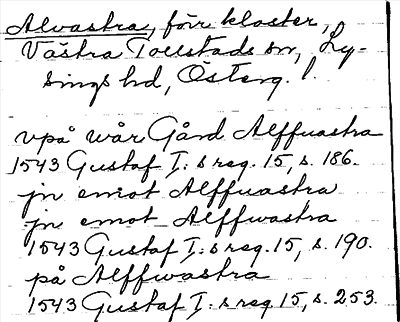 Alvastra, förr kloster,
Västra Tollstads sn, Ly-
sings hd, Österg. l.
vpå wår Gård Alffuastra
1543 Gustaf I:s reg. 15, s. 186.
jn emot Alffuastra
jn emot Alffwastra
1543 Gustaf I:s reg. 15, s. 190.
på Alffwastra
1543 Gustaf I:s reg. 15, s. 253.